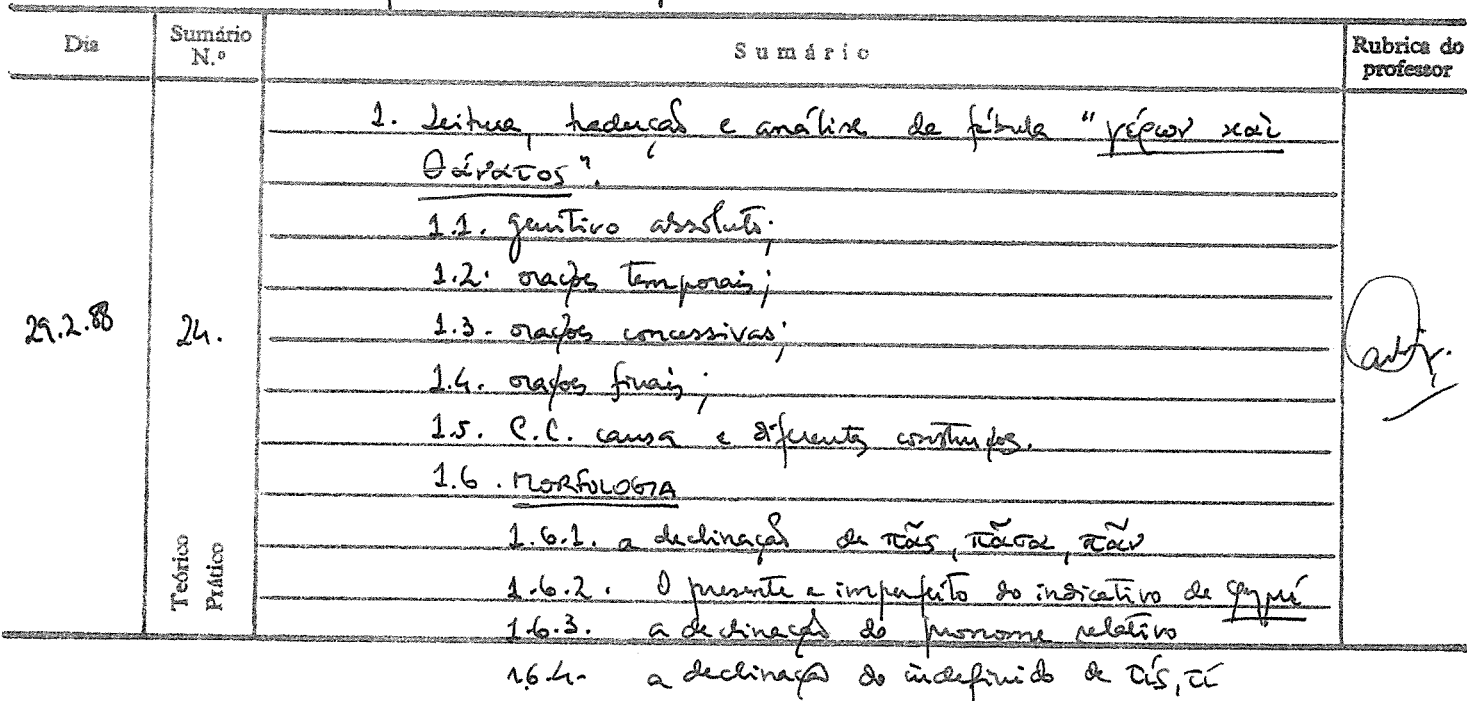 Dia
Sumário N.º
Sumário
Rubrica do professor
1. Leitura, tradução e análise da fábula "γέρων καὶ
θάνατος".
1.1. genitivo absoluto;
1.2. orações temporais;
29.2.88
24.
1.3. orações concessivas;
1.4. orações finais;
1.5. C.C. causa e diferentes construções.
1.6. MORFOLOGIA
Teórico
Prático
1.6.1. a declinação de πᾶς, πᾶσα, πᾶν
1.6.2. O presente e imperfeito do indicativo de φημί
1.6.3. a declinação do pronome relativo
1.6.4. a declinação do indefinido de τίς, τί